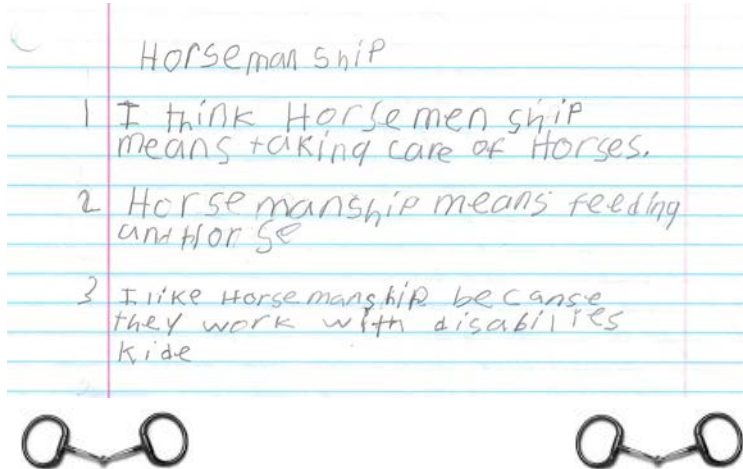 Horsemanship
1 I think Horsemenship
means taking care of Horses.
2 Horsemanship means feeding
and Horse
3 I like Horsemanship because
they work with disabilies
kide